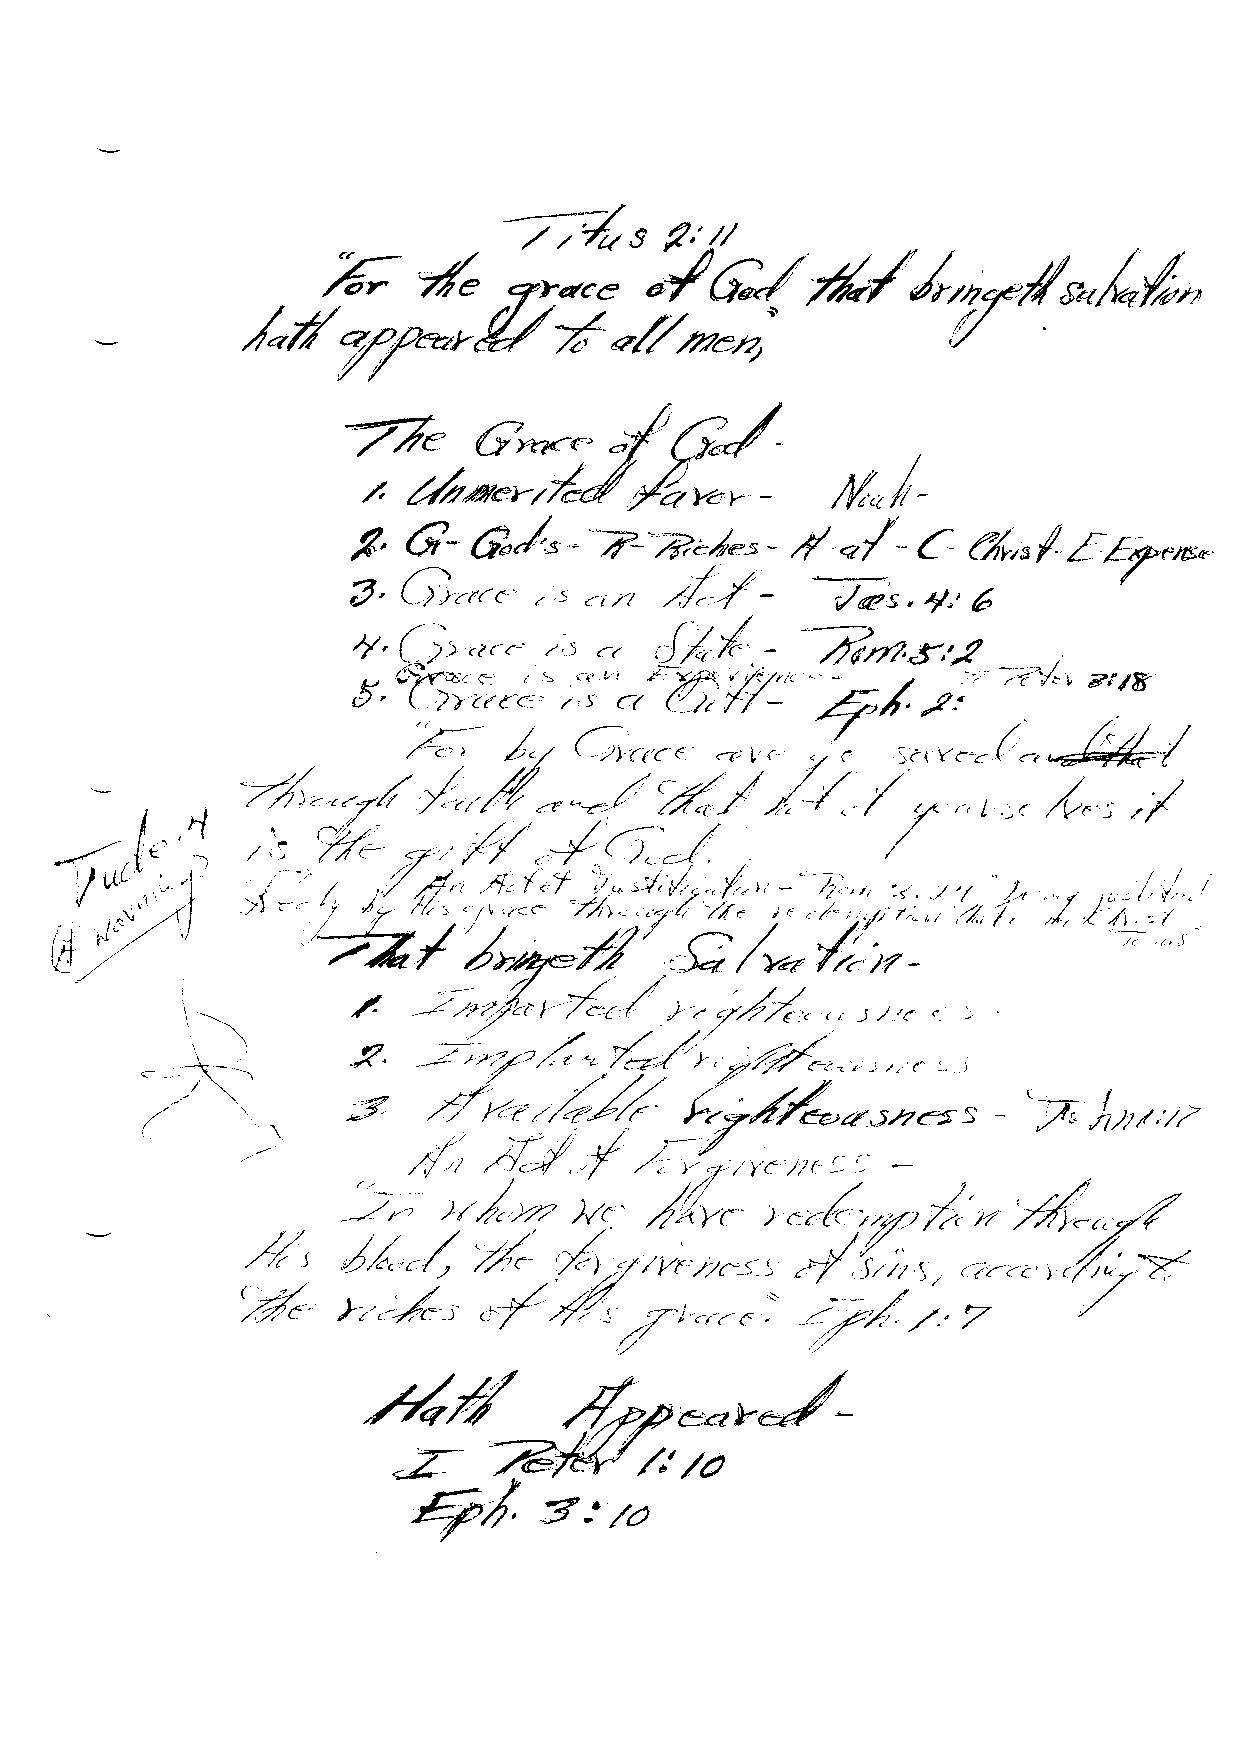 Titus 2:11
"For the grace of God that bringeth salvation
hath appeared to all men,"
The Grace of God -
1. Unmerited favor - Noah -
2. G - God's - R - Riches - A at - C - Christ - E Expense
3. Grace is an Act - Jas. 4:6
4. Grace is a State - Rom. 5:2
Grace is an Experience - II Peter 3:18
5. Grace is a Gift - Eph. 2:
"For by Grace are ye saved
through faith and that not of yourselves it
is the gift of God.
An Act of Justification - Rom 3:24 "Being justified
freely by His grace through the redemption that is in Christ
Jesus"
Jude 4
A warning
That bringeth Salvation -
1. Imparted righteousness -
2. Implanted righteousness
3. Available righteousness - John 1:17
An Act of Forgiveness -
"In whom we have redemption through
His blood, the forgiveness of sins, according to
the riches of His grace." Eph. 1:7
Hath Appeared -
I Peter 1:10
Eph. 3:10